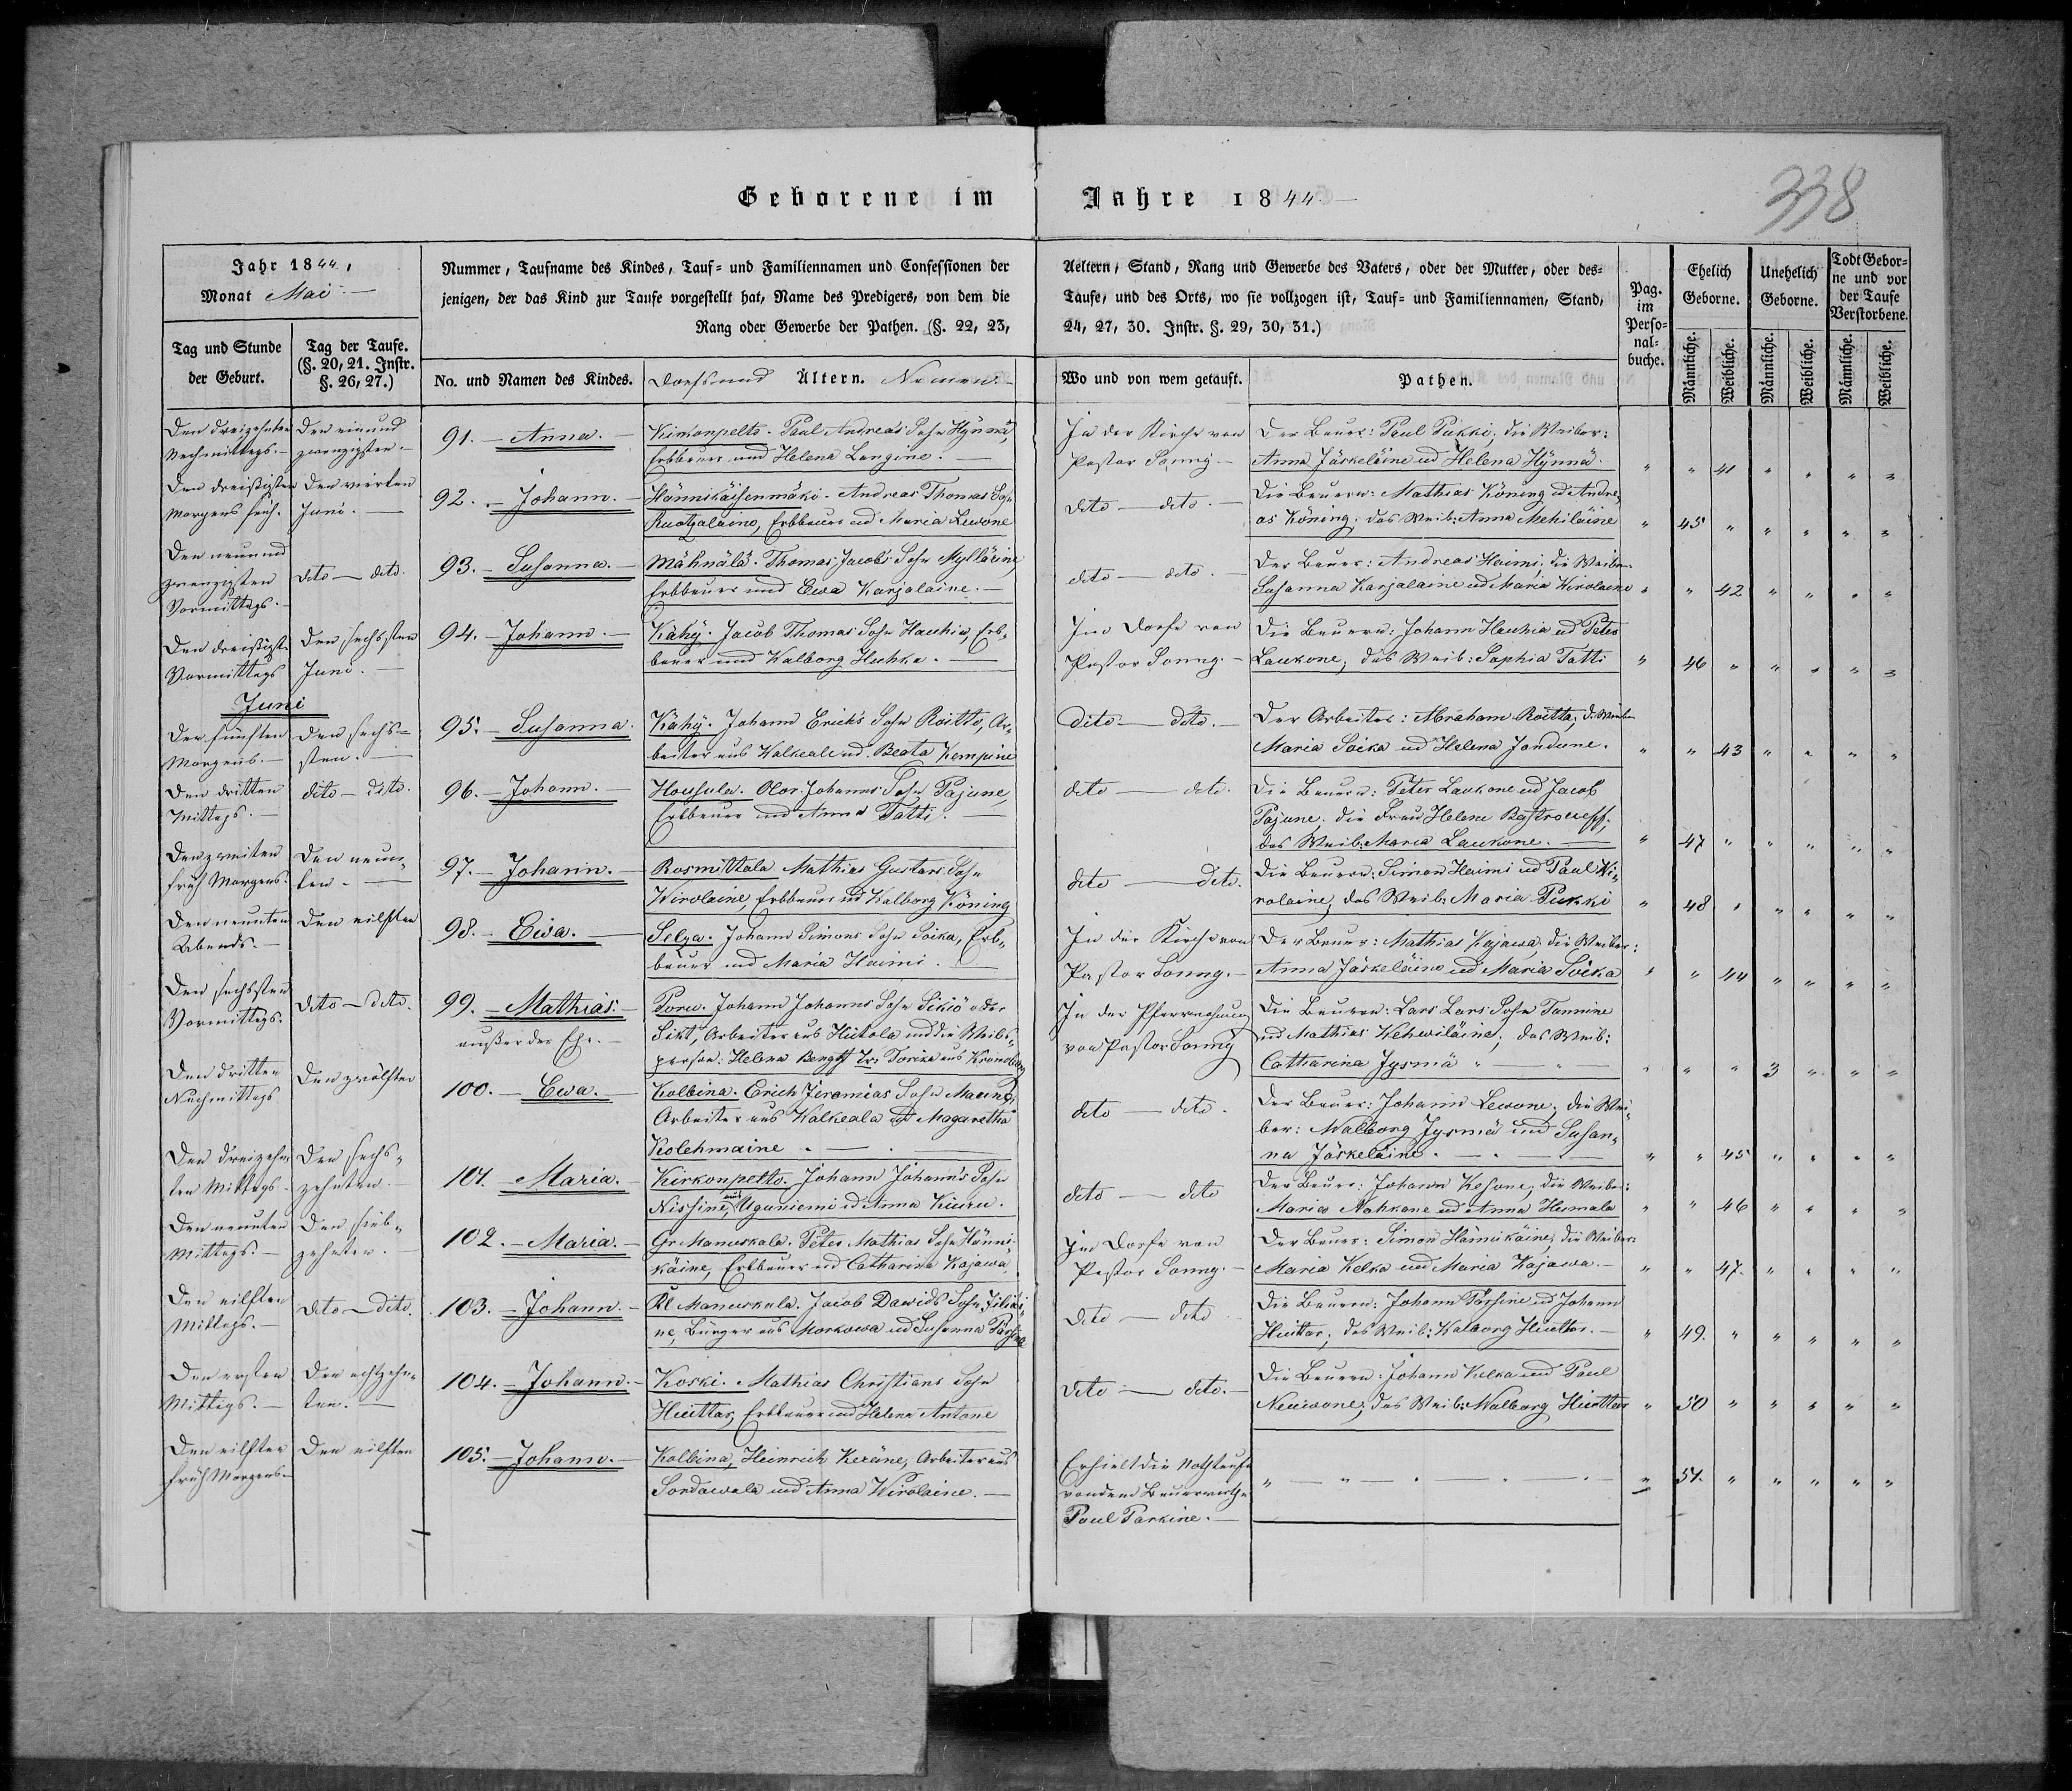 338
Geborene im Jahre 1844.
Jahr 1844,
Monat Mai
Nummer, Taufname des Kindes, Tauf- und Familiennamen und Confessionen der
jenigen, der das Kind zur Taufe vorgestellt hat, Name des Predigers, von dem die
Rang oder Gewerbe der Pathen. (§. 22, 23,
Aeltern, Stand, Rang und Gewerbe des Vaters, oder der Mutter, oder des-
Taufe, und des Orts, wo sie vollzogen ist, Tauf- und Familiennamen, Stand,
24, 27, 30. Instr. §. 29, 30, 31.)
Pag.
im
Perso-
nal-
buche.
Ehelich
Geborne.
Unehelich
Geborne.
Todt Gebor-
ne und vor
der Taufe
Verstorbene.
Tag und Stunde
der Geburt.
Tag der Taufe.
(§. 20, 21. Instr.
§. 26, 27.)
No. und Namen des Kindes.
Dorfs und Ältern. Namen.
Wo und von wem getauft.
Pathen.
Männliche.
Weibliche.
Männliche.
Weibliche.
Männliche.
Weibliche.
Den dreizehnten
Nachmittags.
Den ein und
zwanzigsten.
91. Anna.
Kirkonpelto. Paul Andreas Sohn Hynnä,
Erbbauer und Helena Langine.
In der Kirche von
Pastor Sonny
Der Bauer: Paul Pukki; die Weiber:
Anna Jäskeläine ud Helena Hynnä.
" " 41 " " " "
Den dreißigsten
Morgens früh.
Den vierten
Juni.
92. Johann.
Hännikäisenmäki. Andreas Thomas Sohn
Ruotzalaine, Erbbauer ud Maria Lewone
dito dito.
Die Bauern: Mathias Köning ud Andre,
as Köning; das Weib: Anna Mehiläine
" 45 " " " " "
Den neun und
zwanzigsten
Vormittags.
dito dito.
93. Susanna.
Mähnälä. Thomas Jacobs Sohn Mylläine,
Erbbauer und Ewa Karjalaine.
dito dito.
Der Bauer: Andreas Heimi; die Weiber
Susanna Karjalaine ud Maria Wirolaine
" " 42 " " " "
Den dreißigst.
Vormittags
Den sechsten
Juni.
94. Johann.
Kähy. Jacob Thomas Sohn Hauhia, Erb,
bauer und Walborg Huhka.
Im Dorfe von
Pastor Sonny.
Die Bauern: Johann Hauhia ud Peter
Laukone; das Weib: Sophia Tatti
" 46 " " " " "
Juni
Den fünften
Morgens.
Den sechs-
sten.
95. Susanna.
Kähy. Johann Erichs Sohn Roitto, Ar,
beiter aus Walkeale ud Beata Kempine
dito dito.
Der Arbeiter: Abraham Roitto; d. Weiber
Maria Soika ud Helena Jandune.
" " 43 " " " "
Den dritten
Mittags.
dito dito.
96. Johann.
Housula. Johanns Sohn Pajune,
Erbbauer und Anna Tatti.
dito dito.
Die Bauern: Peter Laukone ud Jacob
Pajune; die Frau Helene
das Weib: Maria Laukone.
" 47 " " " " "
Den zweiten
früh Morgens.
Den neun,
ten.
97. Johann.
Rosmittala Mathias Gustavs Sohn
Wirolaine, Erbbauer ud Walborg Köning
dito dito.
Die Bauern: Simon Haimi ud Paul Wi,
rolaine; das Weib: Maria Pukki
" 48 " " " " "
Den neunten
Abends.
Den eilften
98. Ewa.
Selza. Johann Simons Sohn Soika, Erb,
bauer ud Maria Haimi.
In der Kirche von
Pastor Sonny.
Der Bauer: Mathias Kajawa; die Weiber:
Anna Jäskeläine ud Maria Soika
" " 44 " " " "
Den sechsten
Vormittags.
dito dito.
99. Mathias.
außer der Ehe.
Poru. Johann Johanns Sohn Sikiö oder
Sikt, Arbeiter aus Hiitola und die Weibs,
person: Helena Bengt Tr. aus Kronoborg
In der Pfarrwohnung
von Pastor Sonny
Die Bauern: Lars Lars Sohn Tannine
ud Mathias Kehwiläine; das Weib:
Catharina Jyrmä
" " " 3 " " "
Den dritten
Nachmittags
Den zwölften
100. Ewa.
Kolbina. Erich Jeremias Sohn
Arbeiter aus Walkeala ud Magaretha
Kolehmaine
dito dito.
Der Bauer: Johann Lewone; die Wei,
ber: Walborg Jyrmä und Susan,
na Jäskeläine.
" " 45 " " " "
Den dreizehn
ten Mittags.
Den sechs,
zehnten.
101. Maria.
Kirkonpelto. Johann Johanns Sohn
Nissine, aus Uguniemi ud Anna Kuiru.
dito dito
Der Bauer: Johann Kesone; die Weiber:
Maria Nahkane ud Anna Humala
" " 46 " " " "
Den neunten
Mittags.
Den sieb,
zehnten.
102. Maria.
Gr Manuskala. Peter Mathias Sohn Hänni,
käine, Erbbauer ud Catharina Kajawa.
Im Dorfe von
Pastor Sonny.
Der Bauer: Simon Hännikäine; die Weiber:
Maria Kelka und Maria Kajawa.
" " 47. " " " "
Den eilften
Mittags.
dito dito.
103. Johann.
Kl Manuskala. Jacob Dawids Sohn
ne, Bürger aus ud Susanna
dito dito
Die Bauern: Johann Parssine ud Johann
Huittar; das Weib: Walborg Huittar.
" 49. " " " " "
Den ersten
Mittags.
Den achtzehn,
ten.
104. Johann.
Koski. Mathias Christians Sohn
Huittar, Erbbauer und Helena Antone
dito dito.
Die Bauern: Johann Kelka und Paul
Neuwone; das Weib: Walborg Huittar
" 50 " " " " "
Den eilften
früh Morgens.
Den eilften
105. Johann.
Kolbina, Heinrich Keräne, Arbeiter aus
Sordawala und Anna Wirolaine.
Erhielt die Nothtaufe
von dem Bauerwirthe
Paul Parkine.
" 51. " " " " "